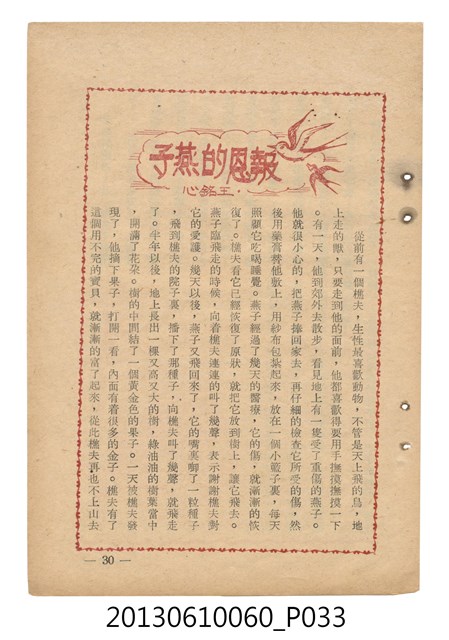 報恩的燕子
・王銘心
從前有一個樵夫，生性最喜歡動物，不管是天上飛的鳥，地
上走的獸，只要走到他的面前，他都喜歡得要用手撫摸撫摸一下
。有一天，他到郊外去散步，看見地上有一隻受了重傷的燕子。
他就很小心的，把燕子捧回家去，再仔細的檢查它所受的傷，然
後用藥膏替他敷上，用紗布包紮起來，放在一個小籃子裏，每天
照顧它吃喝睡覺。燕子經過了幾天的醫療，它的傷，就漸漸的恢
復了。樵夫看它已經恢復了原狀，就把它放到樹上，讓它飛去。
燕子臨飛走的時候，向着樵夫連連的叫了幾聲，表示謝謝樵夫對
它的愛護。幾天以後，燕子又飛回來了，它的嘴裏啣了一粒種子
，飛到樵夫的院子裏，播下了那種子，向樵夫叫了幾聲，就飛走
了。半年以後，地上長出一棵又高又大的樹，綠油油的樹葉當中
，開滿了花朶。樹的中間結了一個黃金色的果子。一天被樵夫發
現了，他摘下果子，打開一看，內面有着很多的金子。樵夫有了
這個用不完的寶貝，就漸漸的富了起來，從此樵夫再也不上山去
— 30 —
20130610060_P033